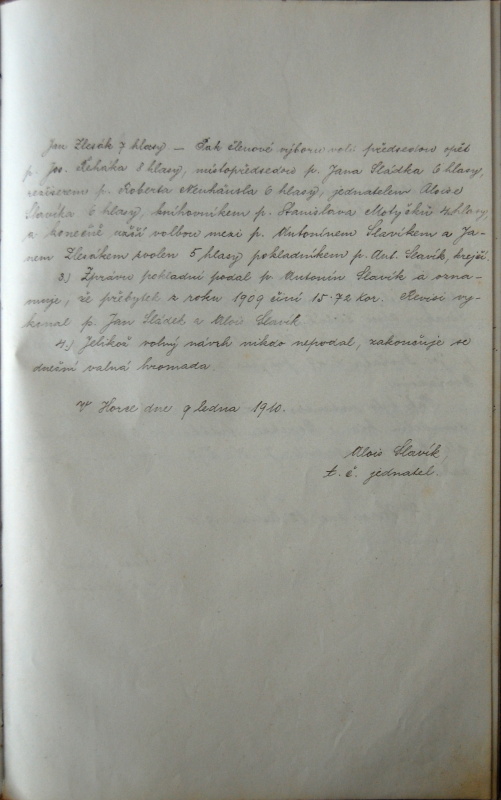 Jan Zlesák 7 hlasy — Pak členové výboru volí předsedou opět
p. Jos. Řeháka 8 hlasy, místopředsedou p. Jana Sládka 6 hlasy,
režisérem p. Roberta Neuhäusla 6 hlasy, jednatelem Aloise
Slavíka 6 hlasy, knihovníkem p. Stanislava Motyčků 4 hlasy,
a konečně užší volbou mezi p. Antonínem Slavíkem a Ja-
nem Zlesákem zvolen 5 hlasy pokladníkem p. Ant. Slavík, krejčí
3.) Zprávu pokladní podal p. Antonín Slavík a ozna-
muje, že přebytek z roku 1909 činí 15·72 kor. Revisi vy-
konal p. Jan Sládek a Alois Slavík
4.) Jelikož volný návrh nikdo nepodal, zakončuje se
dnešní valná hromada
V Horce dne 9 ledna 1910.
Alois Slavík,
t. č. jednatel.